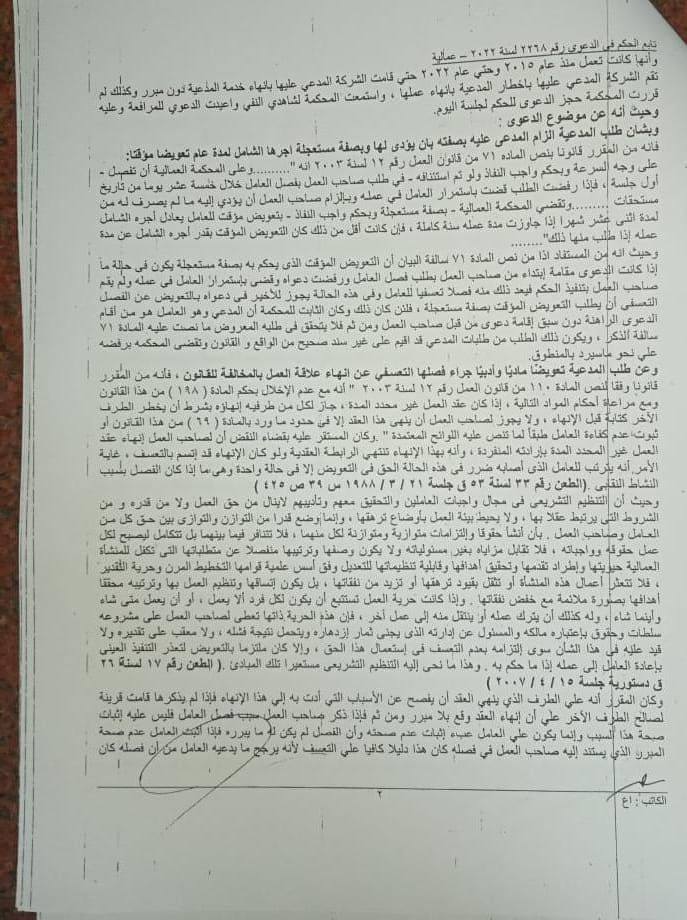 تابع الحكم في الدعوى رقم ٢٢٦٨ لسنة ٢٠٢٢ – عمالية
وأنها كانت تعمل منذ عام ٢٠١٥ وحتي عام ٢٠٢٢ حتي قامت الشركة المدعي عليها بانهاء خدمة المدعية دون مبرر وكذلك لم
تقم الشركة المدعي عليها باخطار المدعية بانهاء عملها ، واستمعت المحكمة لشاهدي النفي واعيدت الدعوي للمرافعة وعليه
قررت المحكمة حجز الدعوى للحكم لجلسة اليوم.
وحيث أنه عن موضوع الدعوى :
وبشأن طلب المدعية الزام المدعى عليه بصفته بان يؤدى لها وبصفة مستعجلة اجرها الشامل لمدة عام تعويضا مؤقتا:
فانه من المقرر قانونا بنص الماده ٧١ من قانون العمل رقم ١٢ لسنة ٢٠٠٣ انه ".........وعلى المحكمة العمالية أن تفصل -
على وجه السرعة وبحكم واجب النفاذ ولو تم استئنافه - في طلب صاحب العمل بفصل العامل خلال خمسة عشر يوما من تاريخ
أول جلسة ، فإذا رفضت الطلب قضت باستمرار العامل في عمله وبإلزام صاحب العمل أن يؤدي إليه ما لم يصرف له من
مستحقات .........وتقضي المحكمة العمالية - بصفة مستعجلة وبحكم واجب النفاذ - بتعويض مؤقت للعامل يعادل أجره الشامل
لمدة اثنى عشر شهرا إذا جاوزت مدة عمله سنة كاملة ، فإن كانت أقل من ذلك كان التعويض المؤقت بقدر أجره الشامل عن مدة
عمله إذا طلب منها ذلك"........
وحيث انه من المستفاد اذا من نص المادة ٧١ سالفة البيان أن التعويض المؤقت الذى يحكم به بصفة مستعجلة يكون فى حالة ما
إذا كانت الدعوى مقامة إبتداء من صاحب العمل بطلب فصل العامل ورفضت دعواه وقضى بإستمرار العامل في عمله ولم يقم
صاحب العمل بتنفيذ الحكم فيعد ذلك منه فصلا تعسفيا للعامل وفى هذه الحالة يجوز للأخير فى دعواه بالتعويض عن الفصل
التعسفى أن يطلب التعويض المؤقت بصفة مستعجلة ، فلئن كان ذلك وكان الثابت للمحكمة أن المدعي وهو العامل هو من أقام
الدعوى الراهنة دون سبق إقامة دعوى من قبل صاحب العمل ومن ثم فلا يتحقق فى طلبه المعروض ما نصت عليه المادة ٧١
سالفة الذكر ، ويكون ذلك الطلب من طلبات المدعي قد اقيم على غير سند صحيح من الواقع و القانون وتقضى المحكمه برفضه
علي نحو ماسيرد بالمنطوق.
وعن طلب المدعية تعويضاً مادياً وأدبياً جراء فصلها التعسفي عن انهاء علاقة العمل بالمخالفة للقانون ، فأنه من المقرر
قانونا وفقا لنص المادة ١١٠ من قانون العمل رقم ١٢ لسنة ٢٠٠٣ " أنه مع عدم الإخلال بحكم المادة ( ١٩٨ ) من هذا القانون
ومع مراعاة أحكام المواد التالية ، إذا كان عقد العمل غير محدد المدة ، جاز لكل من طرفيه إنهاؤه بشرط أن يخطر الطرف
الآخر كتابة قبل الإنهاء ، ولا يجوز لصاحب العمل أن ينهي هذا العقد إلا في حدود ما ورد بالمادة ( ٦٩ ) من هذا القانون أو
ثبوت عدم كفاءة العامل طبقاً لما تنص عليه اللوائح المعتمدة " .وكان المستقر عليه بقضاء النقض أن لصاحب العمل إنهاء عقد
العمل غير المحدد المدة بإرادته المنفردة ، وأنه بهذا الإنهاء تنتهي الرابطة العقدية ولو كان الإنهاء قد إتسم بالتعسف ، غاية
الأمر أنه يترتب للعامل الذى أصابه ضرر فى هذه الحالة الحق فى التعويض إلا فى حالة واحدة وهى ما إذا كان الفصل بسبب
النشاط النقابى .(الطعن رقم ٣٣ لسنة ٥٣ ق جلسة ٢١ / ٣ / ١٩٨٨ س ٣٩ ص ٤٢٥ )
وحيث أن التنظيم التشريعى فى مجال واجبات العاملين والتحقيق معهم وتأديبهم لاينال من حق العمل ولا من قدره و من
الشروط التى يرتبط عقلا بها ، ولا يحيط بيئة العمل بأوضاع ترهقها ، وإنما وضع قدرا من التوازن والتوازى بين حق كل من
العامل وصاحب العمل . بأن أنشأ حقوقا وإلتزامات متوازية ومتوازنة لكل منهما ، فلا تتنافر فيما بينهما بل تتكامل ليصبح لكل
عمل حقوقه وواجباته ، فلا تقابل مزاياه بغير مسئولياته ولا يكون وصفها وترتيبها منفصلا عن متطلباتها التى تكفل للمنشأة
العمالية حيويتها وإطراد تقدمها وتحقيق أهدافها وقابلية تنظيماتها للتعديل وفق أسس علمية قوامها التخطيط المرن وحرية التقدير
، فلا تتعثر أعمال هذه المنشأة او تثقل بقيود ترهقها أو تزيد من نفقاتها ، بل يكون إتساقها وتنظيم العمل بها وترتيبه محققا
أهدافها بصورة ملائمة مع خفض نفقاتها . وإذا كانت حرية العمل تستتبع أن يكون لكل فرد ألا يعمل ، أو أن يعمل متى شاء
وأينما شاء ، وله كذلك أن يترك عمله أو ينتقل منه إلى عمل آخر ، فإن هذه الحرية ذاتها تعطى لصاحب العمل على مشروعه
سلطات وحقوق بإعتباره مالكه والمسئول عن إدارته الذى يجنى ثمار إزدهاره ويتحمل نتيجة فشله ، ولا معقب على تقديره ولا
قيد عليه في هذا الشأن سوى إلتزامه بعدم التعسف فى إستعمال هذا الحق ، وإلا كان ملتزما بالتعويض لتعذر التنفيذ العينى
بإعادة العامل إلى عمله إذا ما حكم به . وهذا ما نحى إليه التنظيم التشريعى مستعيرا تلك المبادئ .( الطعن رقم ١٧ لسنة ٢٦
ق دستورية جلسة ١٥ / ٤ / ٢٠٠٧ )
وكان المقرر أنه علي الطرف الذي ينهي العقد أن يفصح عن الأسباب التي أدت به إلي هذا الإنهاء فإذا لم يذكرها قامت قرينة
لصالح الطرف الآخر علي أن إنهاء العقد وقع بلا مبرر ومن ثم فإذا ذكر صاحب العمل سبب فصل العامل فليس عليه إثبات
صحة هذا السبب وإنما يكون علي العامل عبء إثبات عدم صحته وأن الفصل لم يكن له ما يبرره فإذا أثبت العامل عدم صحة
المبرر الذي يستند إليه صاحب العمل في فصله كان هذا دليلا كافيا علي التعسف لأنه يرجح ما يدعيه العامل من أن فصله كان
٢
الكاتب : اع